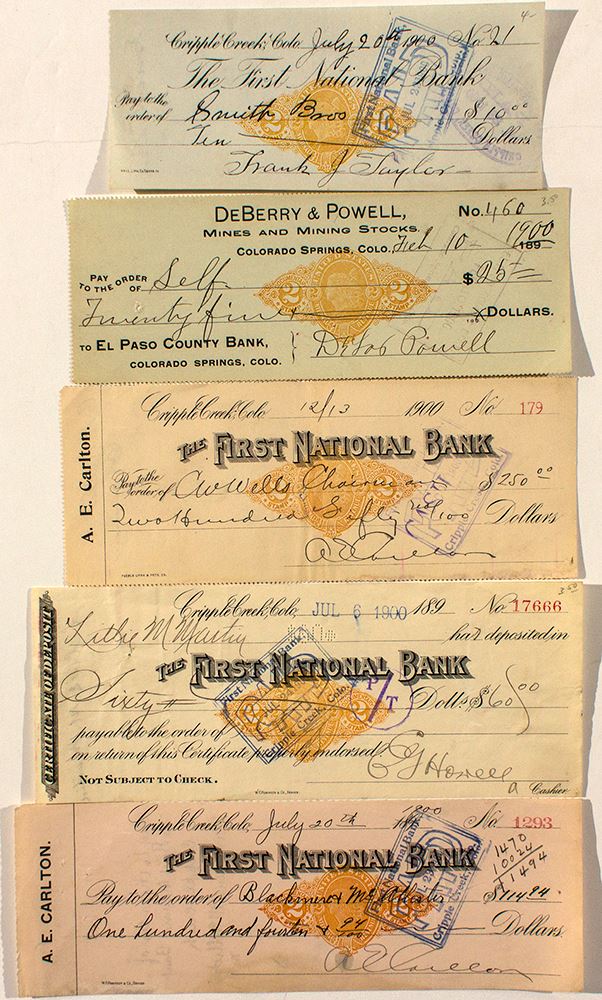 4-
Cripple Creek, Colo. July 20th 1900 No. 21
The First National Bank
Pay to the order of Smith Bros $10.00
Ten Dollars
Frank J Taylor
3.5
DeBerry & Powell, No. 460
Mines and Mining Stocks,
Colorado Springs, Colo. Feb 10 - 1900 189
Pay to the order of Self $25
Twenty five x Dollars.
to El Paso County Bank,
Colorado Springs, Colo.
Powell
A. E. Carlton.
Cripple Creek, Colo. 12/13 1900 No. 179
The First National Bank
Pay to the order of CW Wells Chairman $250.00
Two Hundred & fifty no/100 Dollars
A E Carlton
Certificate of Deposit
Cripple Creek, Colo. JUL 6 1900 189 No. 17666
has deposited in
The First National Bank
Sixty Dolls. $60.00
payable to the order of
on return of this Certificate properly endorsed.
Not Subject to Check.
EG Howell
a Cashier
A. E. Carlton.
Cripple Creek, Colo. July 20th 1900 No. 1293
The First National Bank
Pay to the order of Blackmer &
One hundred and fourteen & 94/100 Dollars.
A E Carlton